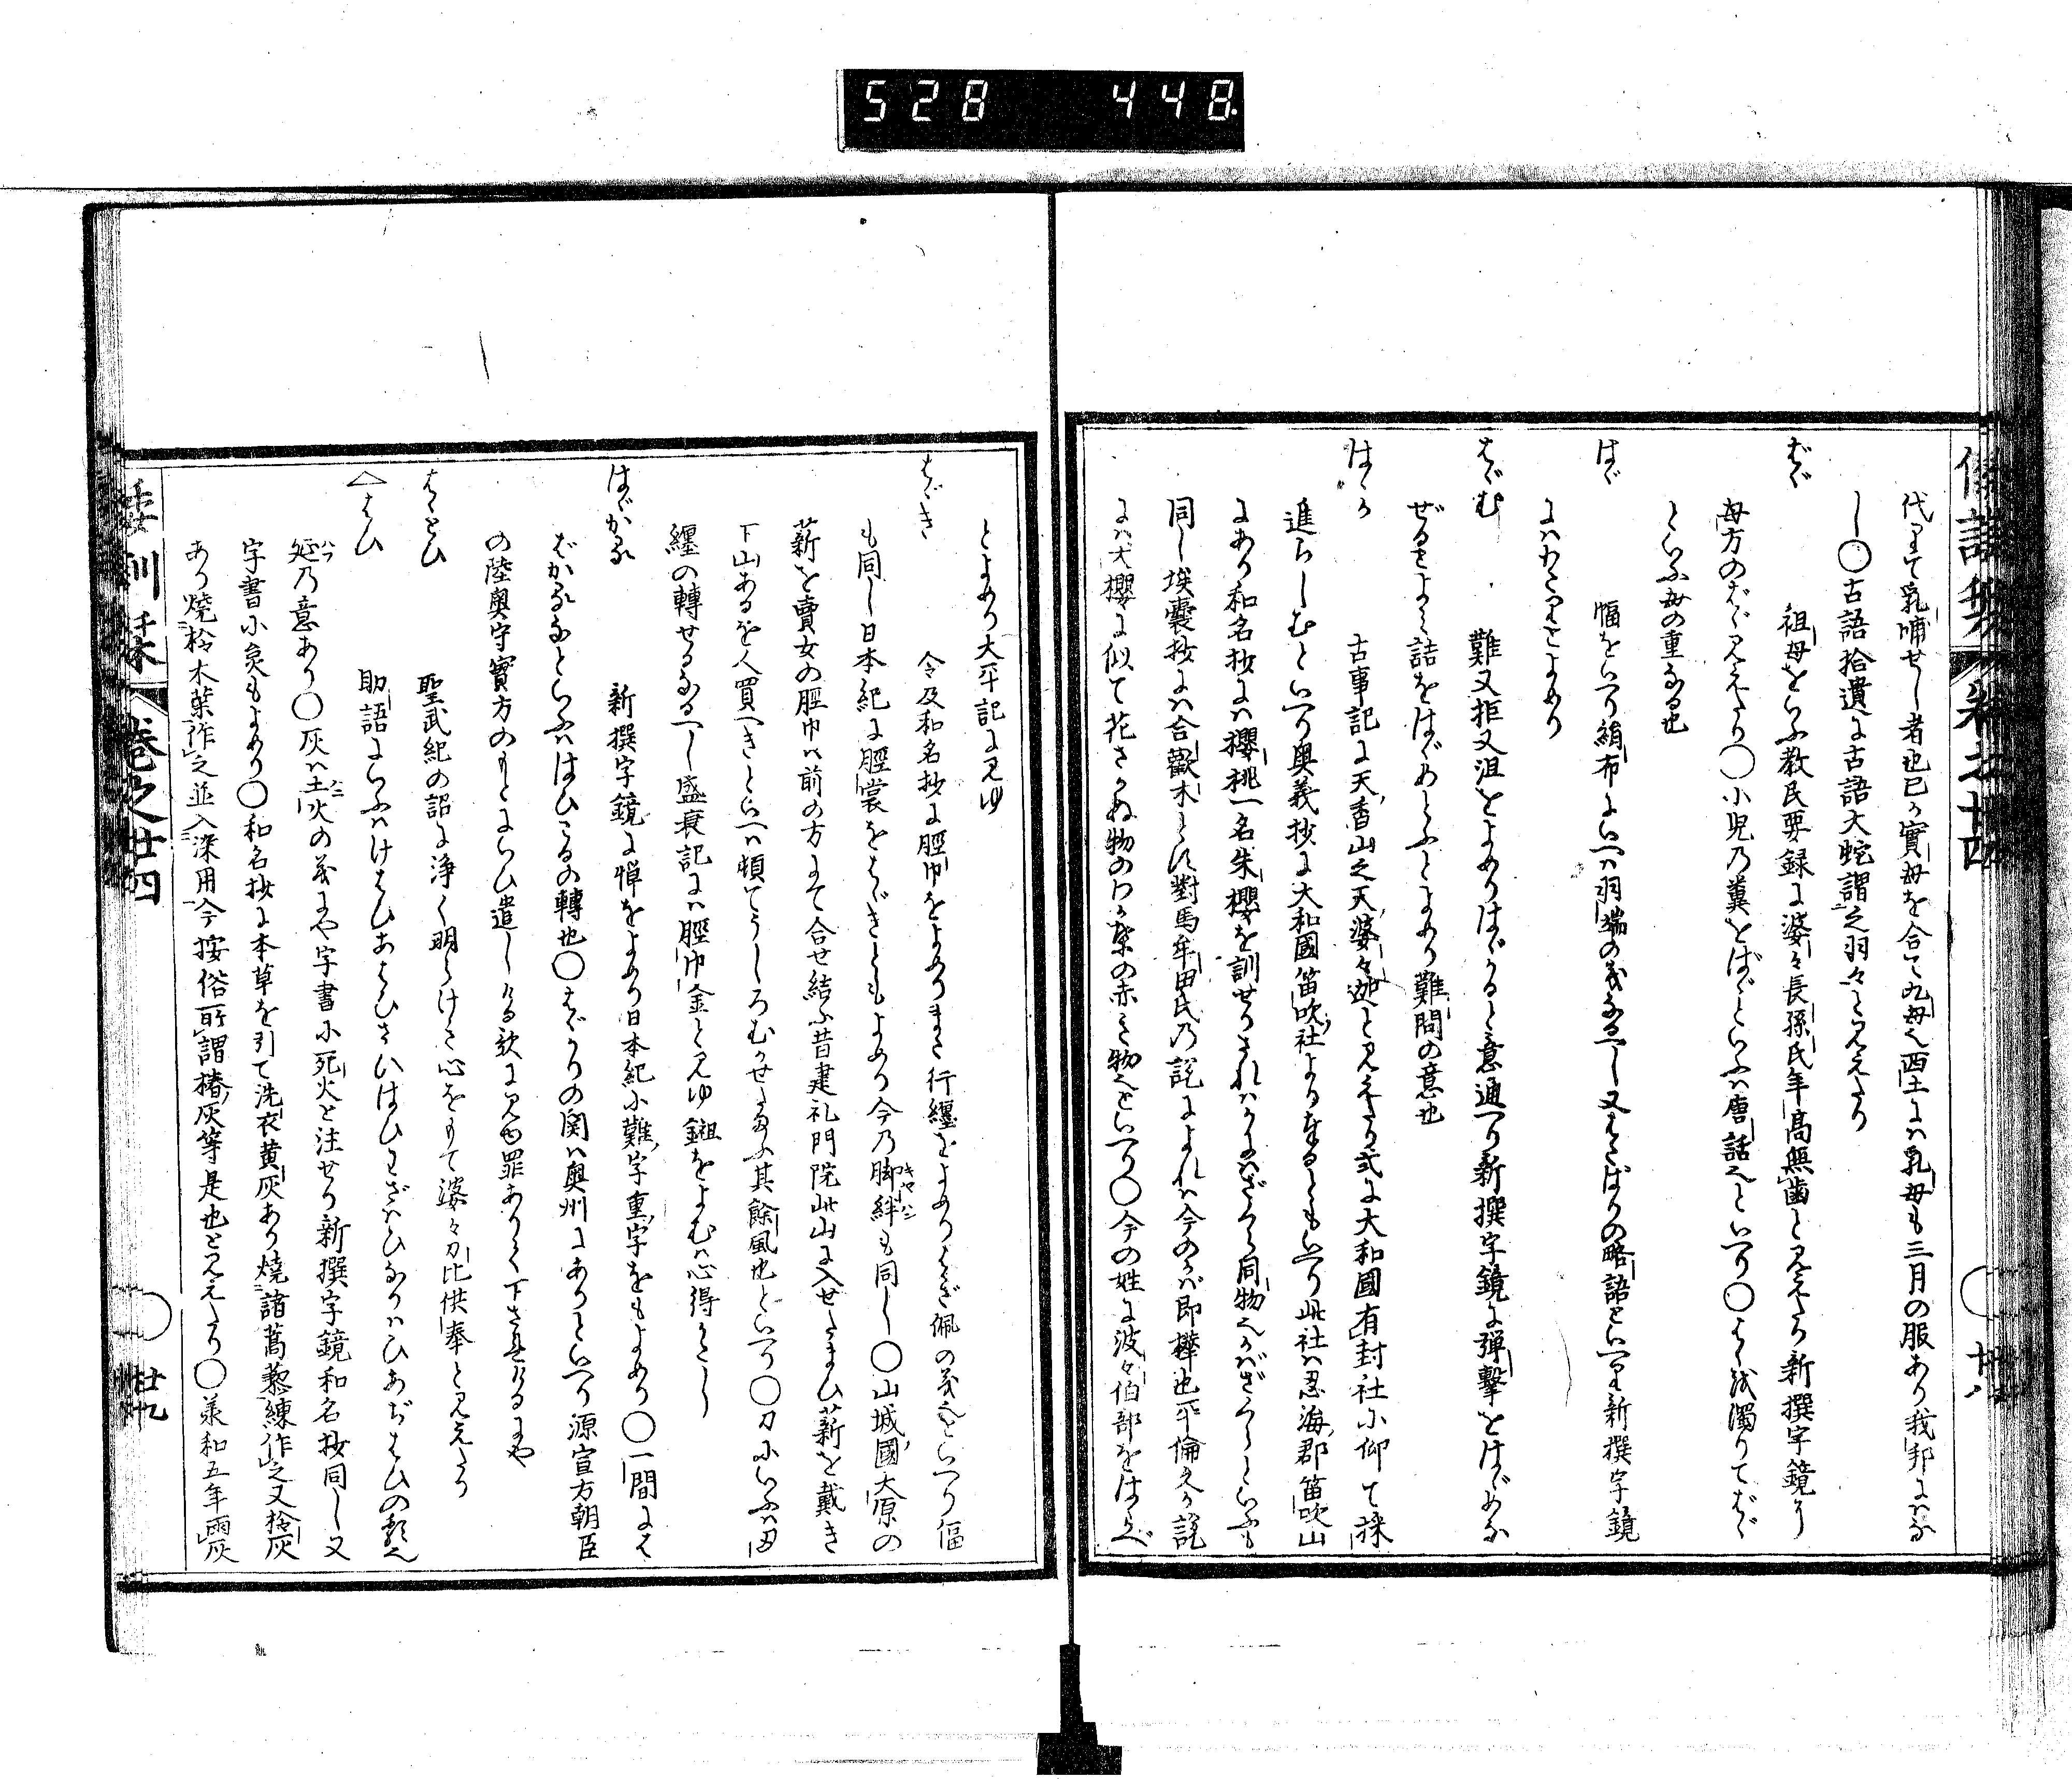 528 448
代りて乳哺せし者也已上實母を合て九母也西土にハ乳母も三月の服あり我邦にハな
し〇古語拾遺に古語大蛇謂之羽々と見えたり
はゞ 祖母をいふ教民要録に婆々長孫氏年高無齒と見えたり新撰字鏡に
母方のはゞ見えたり〇小児の糞をばゞといふハ唐話也といへり〇はゝを濁りてばゞ
といふ母の重なる也
はゞ 幅をいへり絹布にいへハ羽端の義なるへし又はたばりの略語といへり新撰字鏡
にハわたりとよめり
はゞむ 難又拒又沮をよめりはゞかると意通へり新撰字鏡に弾撃をはゞめな
ぜるとよみ詰をはゞめとふとよめり難問の意也
はゝか 古事記に天香山之天婆々迦と見えたり式に大和國有封社に仰て採
進らしむといへり奥義抄に大和國笛吹社よりたるともいへり此社ハ忍海郡笛吹山
にあり和名抄にハ櫻桃一名朱櫻を訓せりされハかにハざくら同物也かばざくらといふも
同し埃嚢抄にハ合歡木とす對馬牟田氏の説によれハ今のかば即樺也平倫之か説
にハ犬櫻に似て花さかぬ物のわか葉の赤き物也といへり〇今の姓に波々伯部をはゝかべ
とよめり大平記に見ゆ
はゞき 令及和名抄に脛巾をよめりまた行纏をよめりはぎ佩の義也といへり偪
も同し日本紀に脛裳をはゞきともよめり今の脚絆も同し〇山城國大原の
薪を賣女の脛巾ハ前の方にて合せ結ふ昔建礼門院此山に入せたまひ薪を戴き
下山あるを人買へきといへハ頓てうしろむかせたまふ其餘風也といへり〇刀にいふハ
纏の轉せるなるへし盛衰記にハ脛巾金と見ゆ鎺をよむハ心得かたし
はゞかる 新撰字鏡に憚をよめり日本紀に難字重字をもよめり〇一間には
ばかるなといふハはひこるの轉也〇はゞかりの関ハ奥州にありといへり源宣方朝臣
の陸奥守實方のもとにいひ遣しける歌に見ゆ罪ありて下されけるにや
はゝとひ 聖武紀の詔に浄く明らけき心をもて婆々刀比供奉と見えたり
へはひ 助語にいふハけはひあちはひさいはひわざハひなりハひあぢはひの類也
延の意あり〇灰ハ土火の義にや字書に死火と注せり新撰字鏡和名抄同し又
字書に炱もよめり〇和名抄に本草を引て洗衣黄灰あり燒諸蒿藜練作之又柃灰
あり燒柃木葉作之並入染用今按俗所謂椿灰等是也と見えたり〇承和五年雨灰
倭訓栞 卷之廿四 廿九